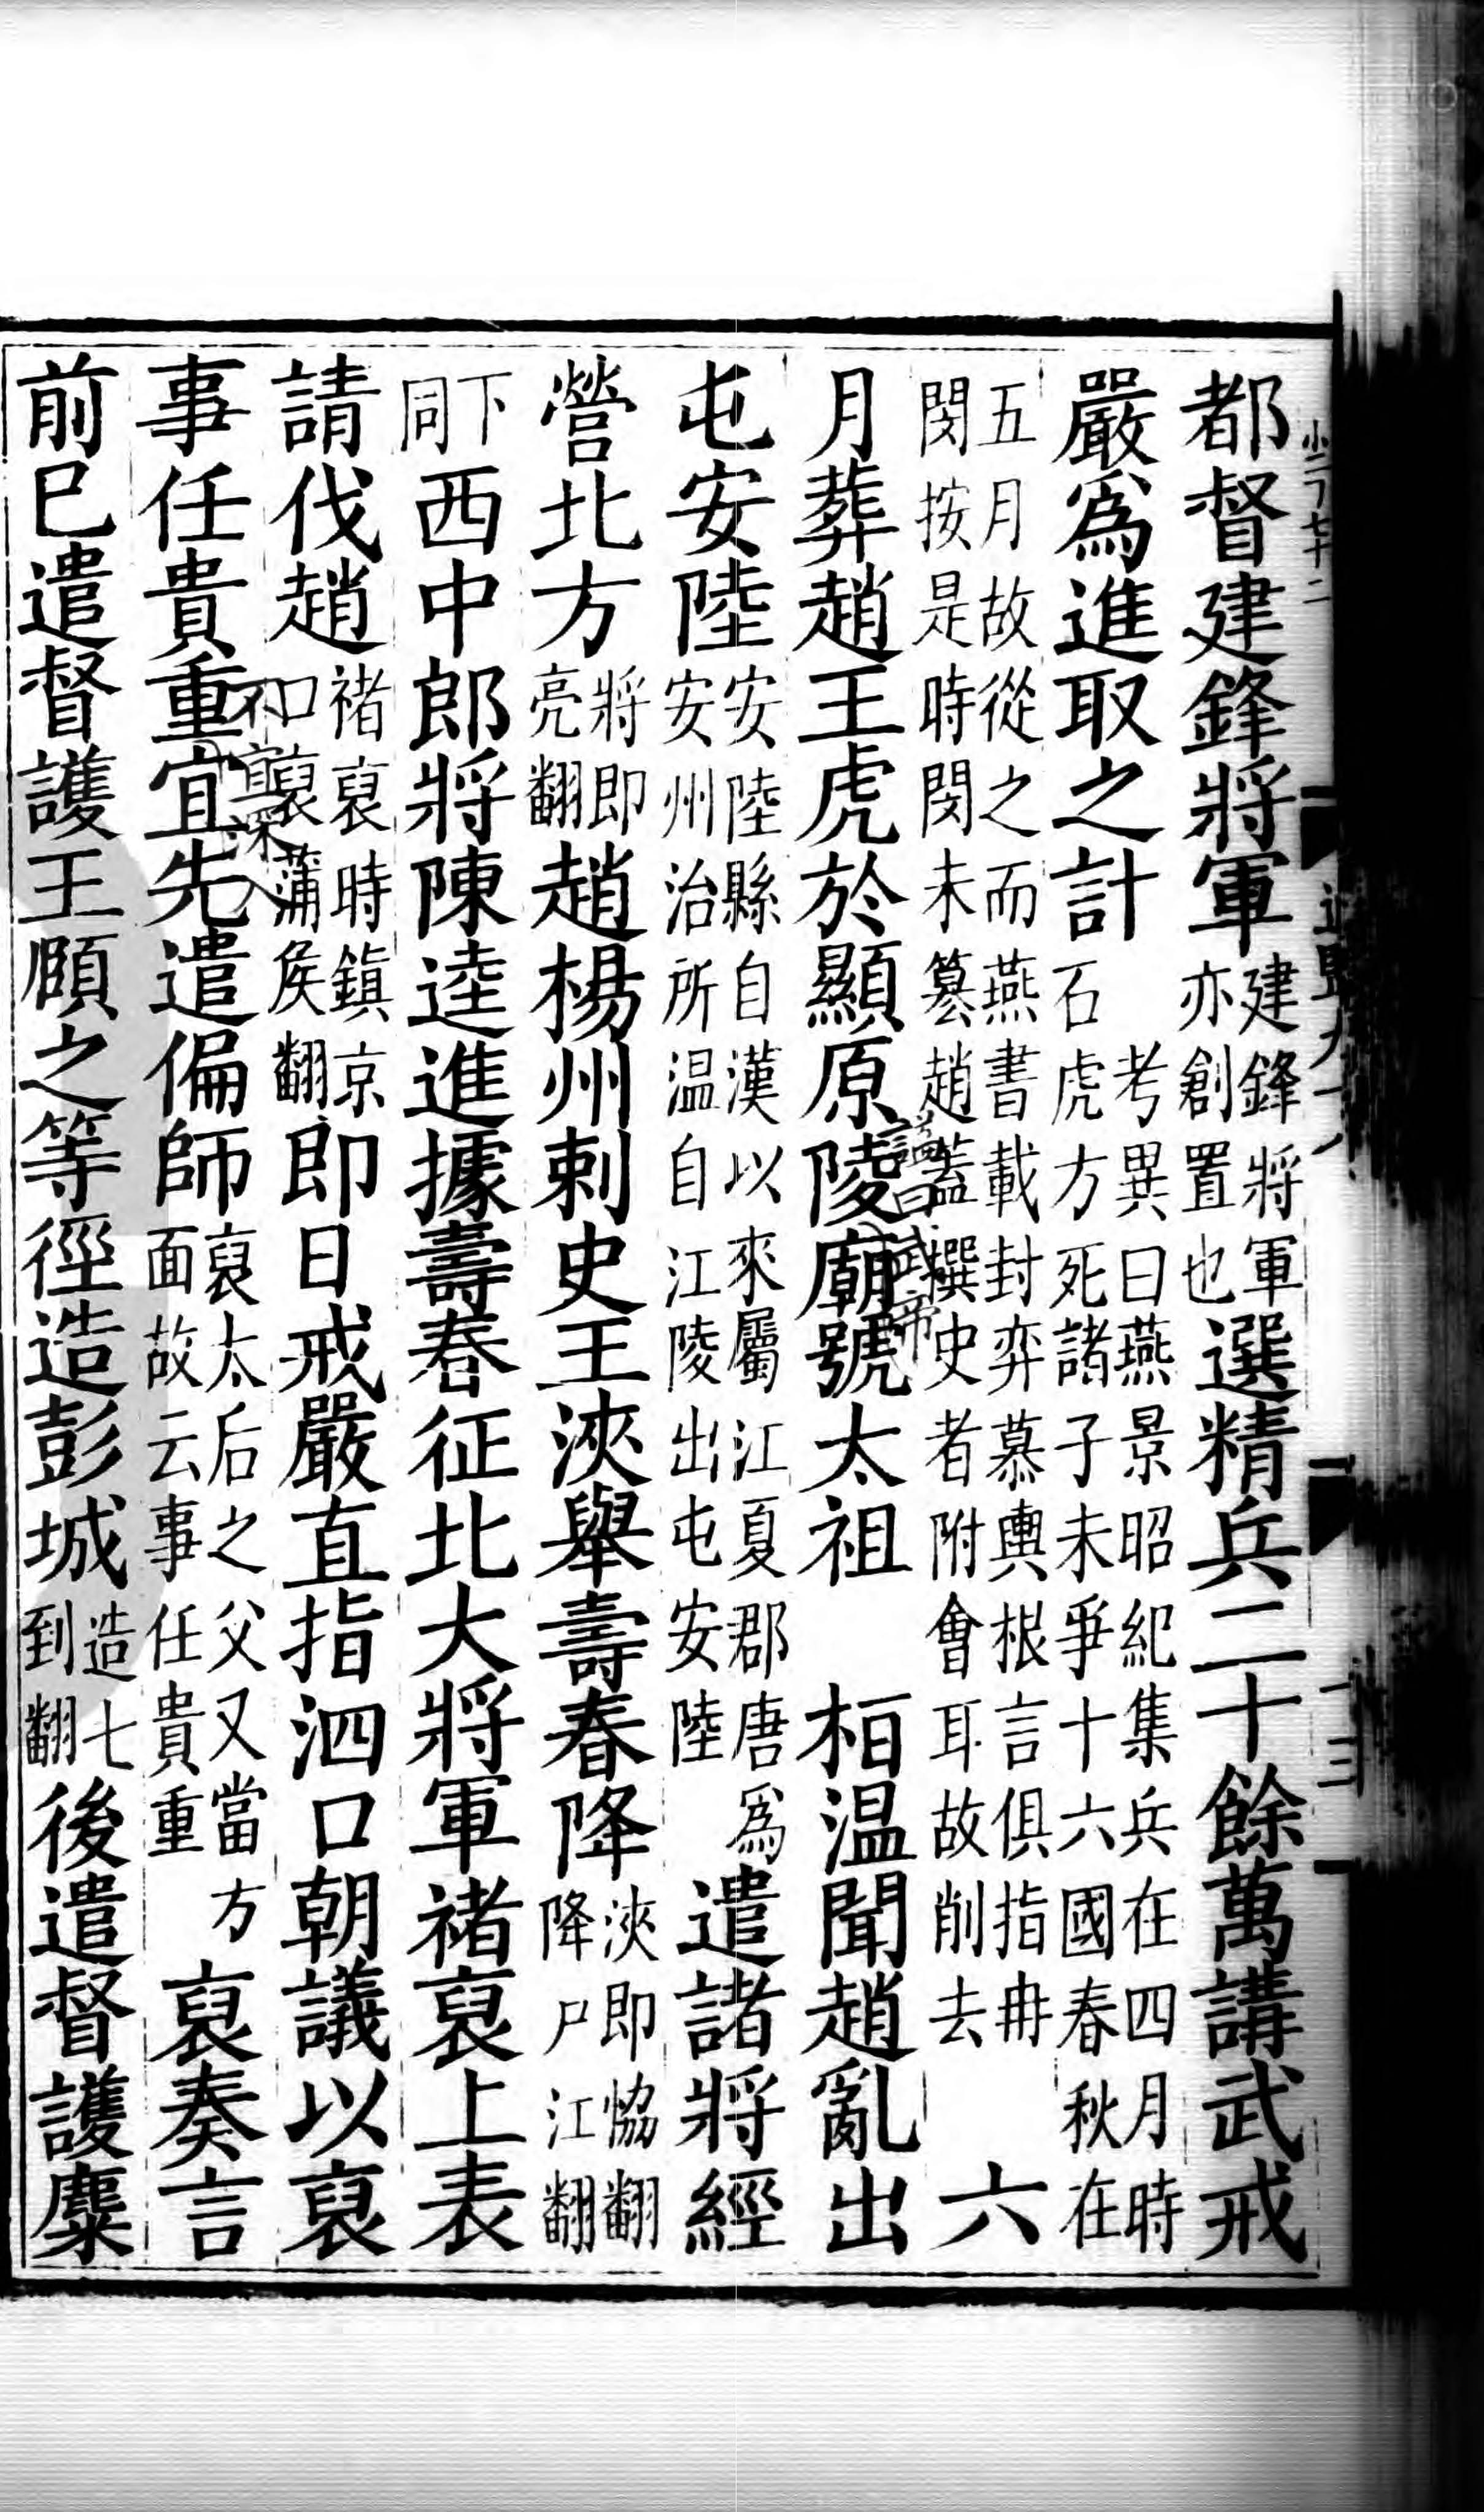 小二丁七十二
通鑑九十八
十三
都督建鋒將軍建鋒將軍亦創置也選精兵二十餘萬講武戒
嚴爲進取之計考異曰燕景昭紀集兵在四月時石虎方死諸子未爭十六國春秋在
五月故從之而燕書載封弈慕輿根言俱指冉閔按是時閔未篡趙蓋撰史者附會耳故削去六
月葬趙王虎於顯原陵廟號太祖 桓温聞趙亂出
諡曰武帝
屯安陸安陸縣自漢以來屬江夏郡唐爲安州治所温自江陵出屯安陸遣諸將經
營北方將即亮翻趙楊州刺史王浹舉壽春降浹即恊翻降戶江翻
下同西中郎將陳逵進據壽春征北大將軍褚裒上表
請伐趙褚裒時鎮京口裒蒲侯翻即日戒嚴直指泗口朝議以裒
不宜深入
事任貴重宜先遣偏師裒太后之父又當方面故云事任貴重裒奏言
前已遣督護王頤之等徑造彭城造七到翻後遣督護麋